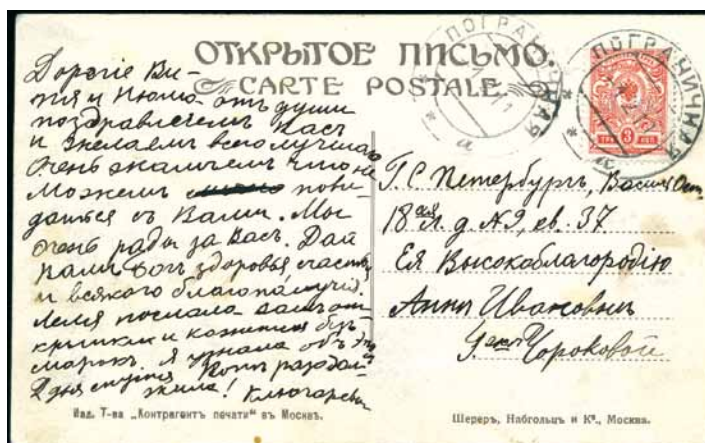 ОТКРЫТОЕ ПИСЬМО.
CARTE POSTALE.
ПОГРАНИЧНАЯ
ПОГРАНИЧНАЯ
а
а
3
Дорогіе Ви-
тя и Нюша отъ души
поздравляемъ васъ
и желаемъ всего лучшаго
Очень жалѣемъ что не
можемъ пови-
даться съ Вами. Мы
очень рады за Васъ. Дай
Вамъ Богъ здоровья, счастья
и всякаго благополучія.
Леля послала вамъ от-
крытки и кажется безъ
марокъ. Я узнала объ
2 дня спустя
жила! Ключарева
Г. С Петербургъ, Васил Ост.
18 ая л. д. № 9, кв. 37
Ея Высокоблагородію
Аннѣ Ивановнѣ
Изд. Т-ва „Контрагентъ печати“ въ Москвѣ.
Шереръ, Набгольцъ и Кº., Москва.